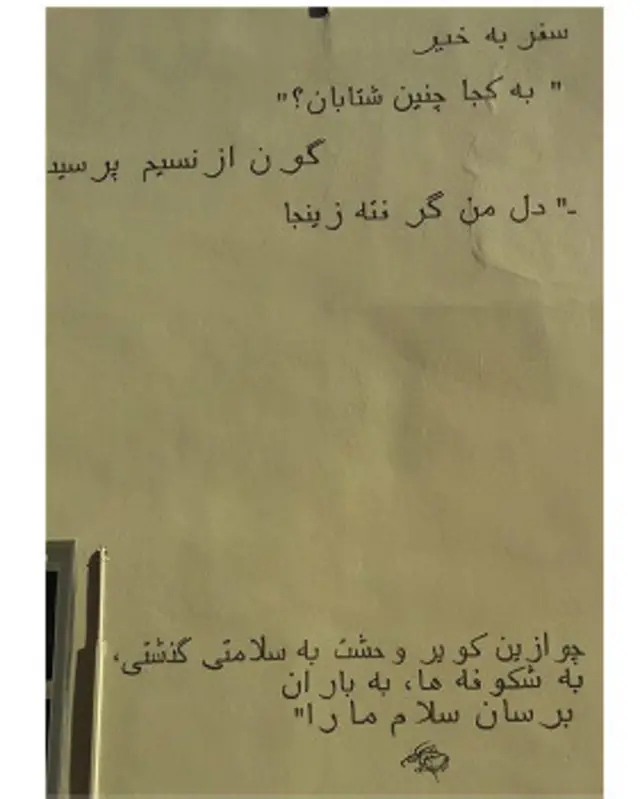 سفر به خیر
" به کجا چنین شتابان؟"
گون از نسیم پرسید
-" دل من گرفته زینجا
چو ازین کویر وحشت به سلامتی گذشتی،
به شکوفه ها، به باران
برسان سلام ما را"